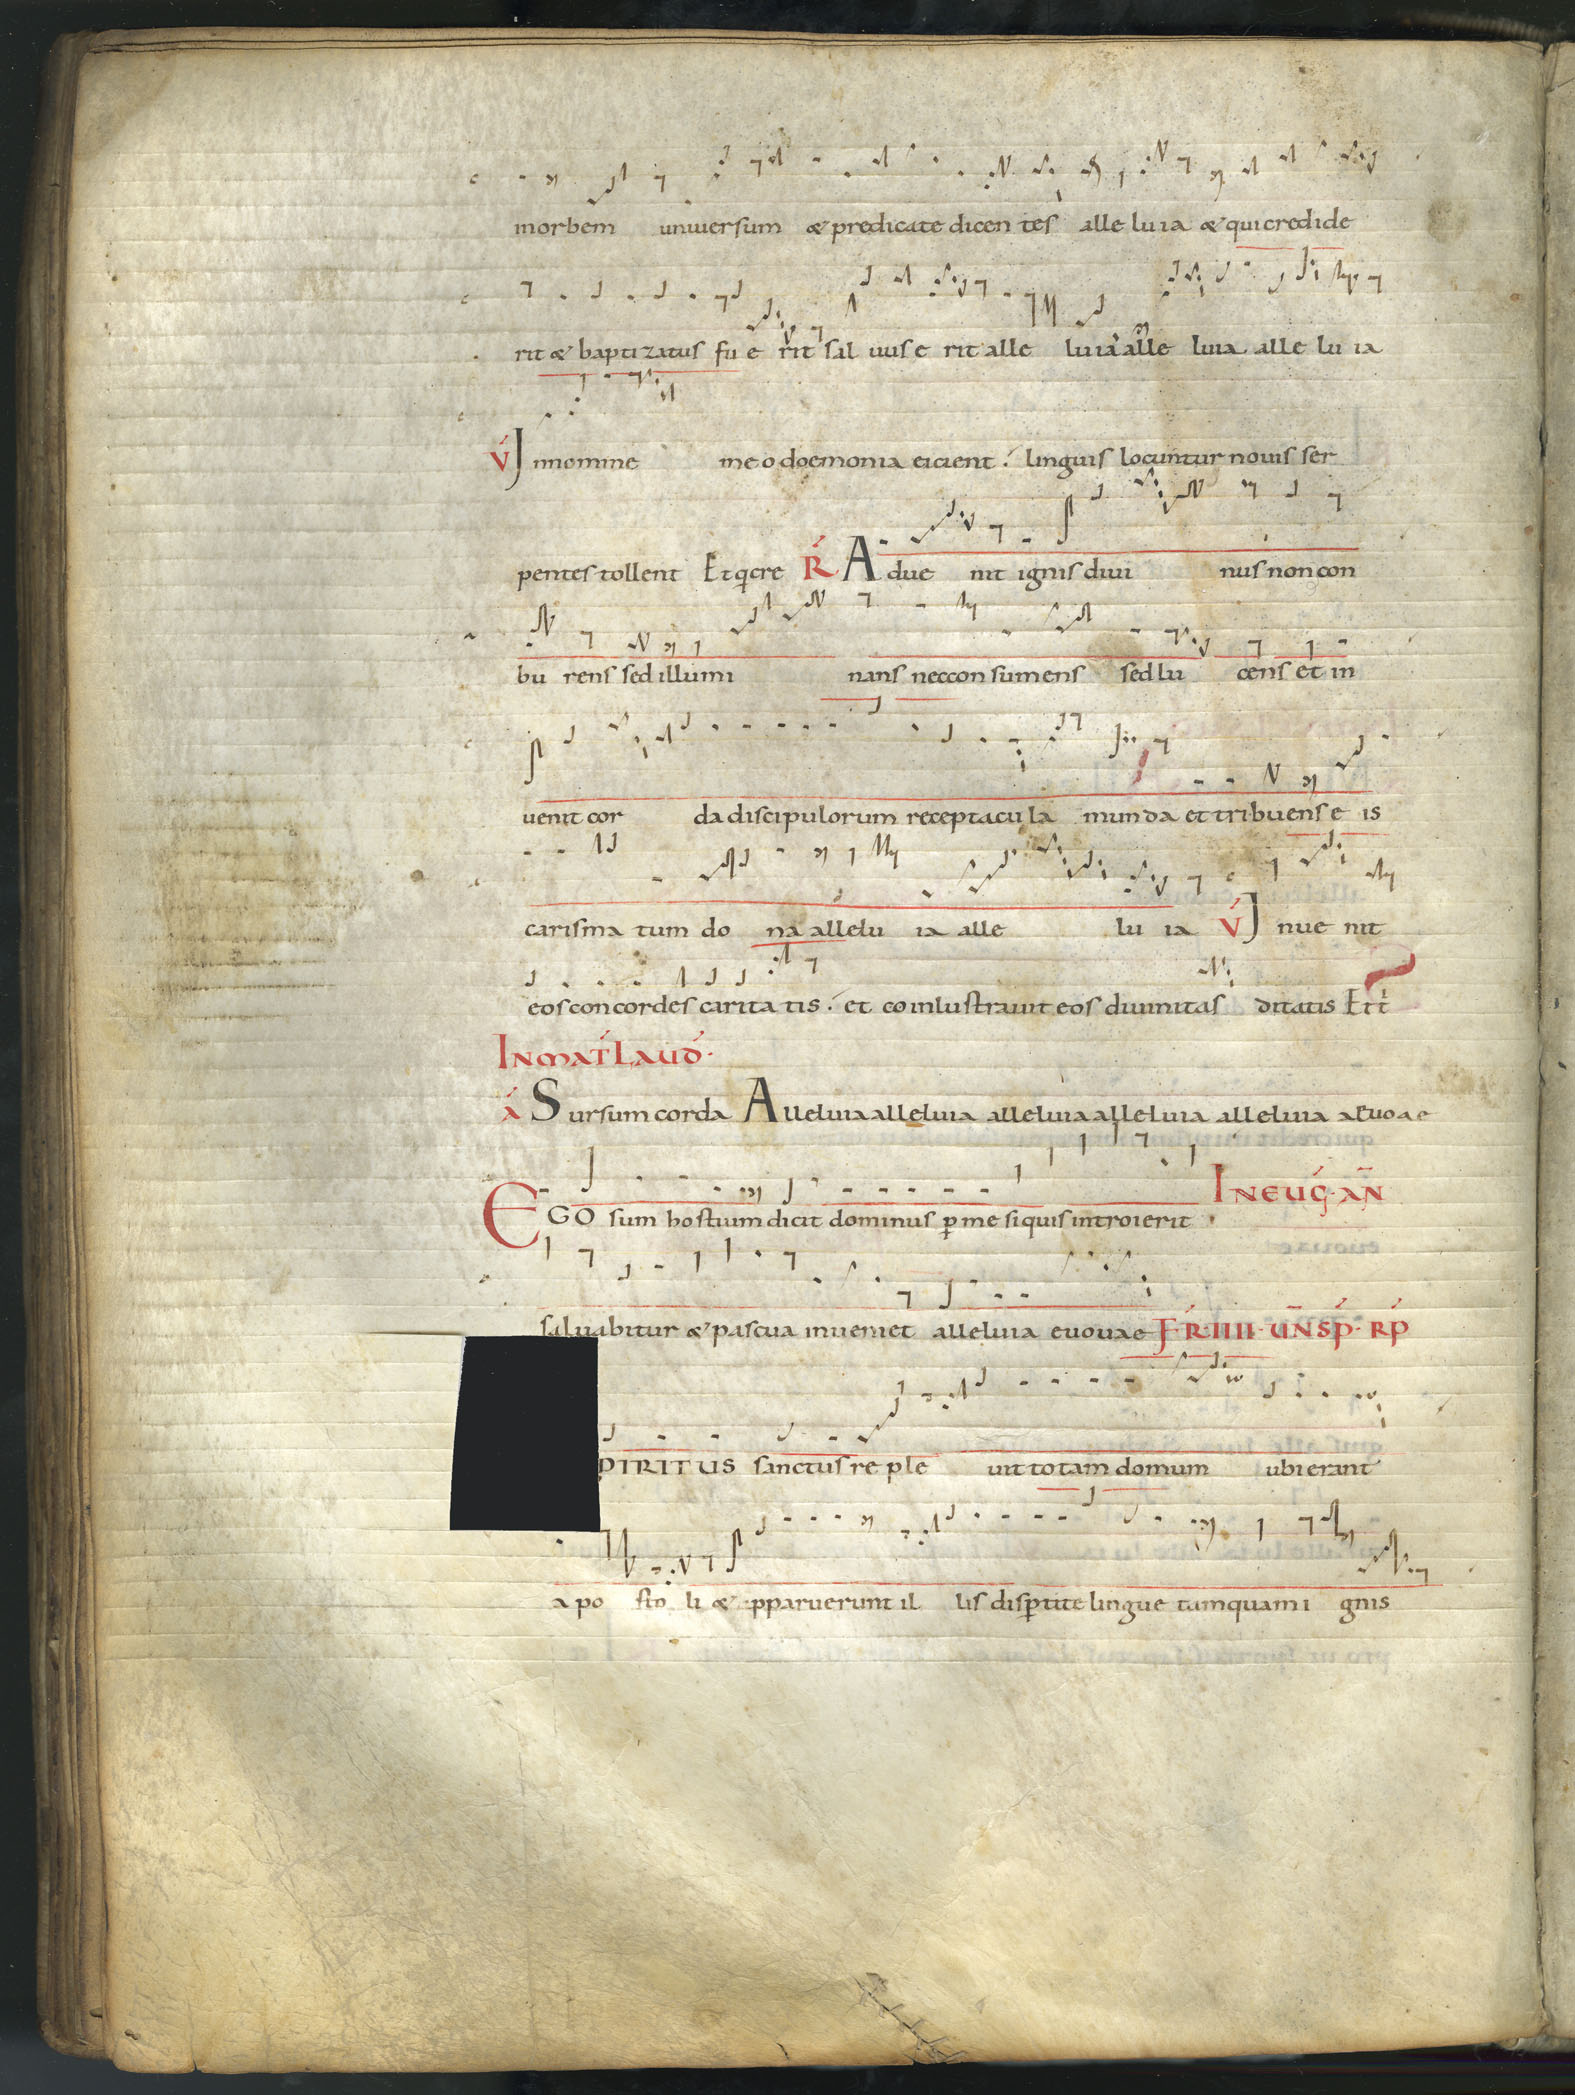 morbem universum & predicate dicen tes alle lu ia & qui credide
rit & baptizatus fu e rit sal uus e rit alle lu ia alle luia alle lu ia
V́ Innomine meo doemonia eicient . linguis locuntur nouis ser
pentes tollent Et q cre Ŕ Adue nit ignis diui nus non con
bu rens sed illumi nans nec con sumens sed lu cens et in
uenit cor da discipulorum receptacu la munda et tribuens e is
carisma tum do na allelu ia alle lu ia V́ Inue nit
eos concordes carita tis . et eo inlustrauit eos diuinitas ditatis Et t
INMAT LAUD .
Á Sursum corda Alleluia alleluia alleluia alleluia alleluia aeuoae
EGO sum hostium dicit dominus p me si quis introierit INEUG . AN
saluabitur & pascua inueniet alleluia euouae FR IIII . UNSP . RP
PIRITUS sanctus re ple uit totam domum ubi erant
a po sto li & apparuerunt il lis dispertite lingue tamquam i gnis